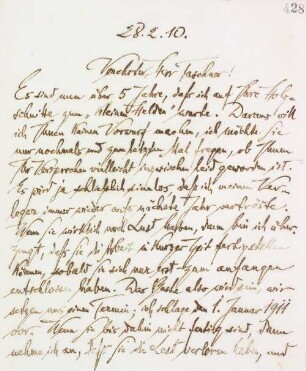 428
28.2.10.
Verehrter Herr Taschner!
Es sind nun über 5 Jahre, daß ich auf Ihre Holz-
schnitte zum "kleinen Helden" warte. Daraus will
ich Ihnen keinen Vorwurf machen, ich möchte Sie
nur nochmals und zum letzten Mal fragen, ob Ihnen
Ihr Versprechen vielleicht inzwischen leid geworden ist.
Es wird ja schließlich sinnlos, daß ich meinen Ver-
leger immer wieder aufs nächste Jahr vertröste.
Wenn Sie wirklich noch Lust haben, dann bin ich über-
zeugt, daß Sie die Arbeit in kurzer Zeit fertig stellen
können, sobald Sie sich nur erst zum anfangen
entschlossen haben. Das Beste also wird sein, wir
setzen uns einen Termin; ich schlage den 1. Januar 1911
vor. Wenn Sie bis dahin nicht fertig sind, dann
nehme ich an, daß Sie die Lust verloren haben, und